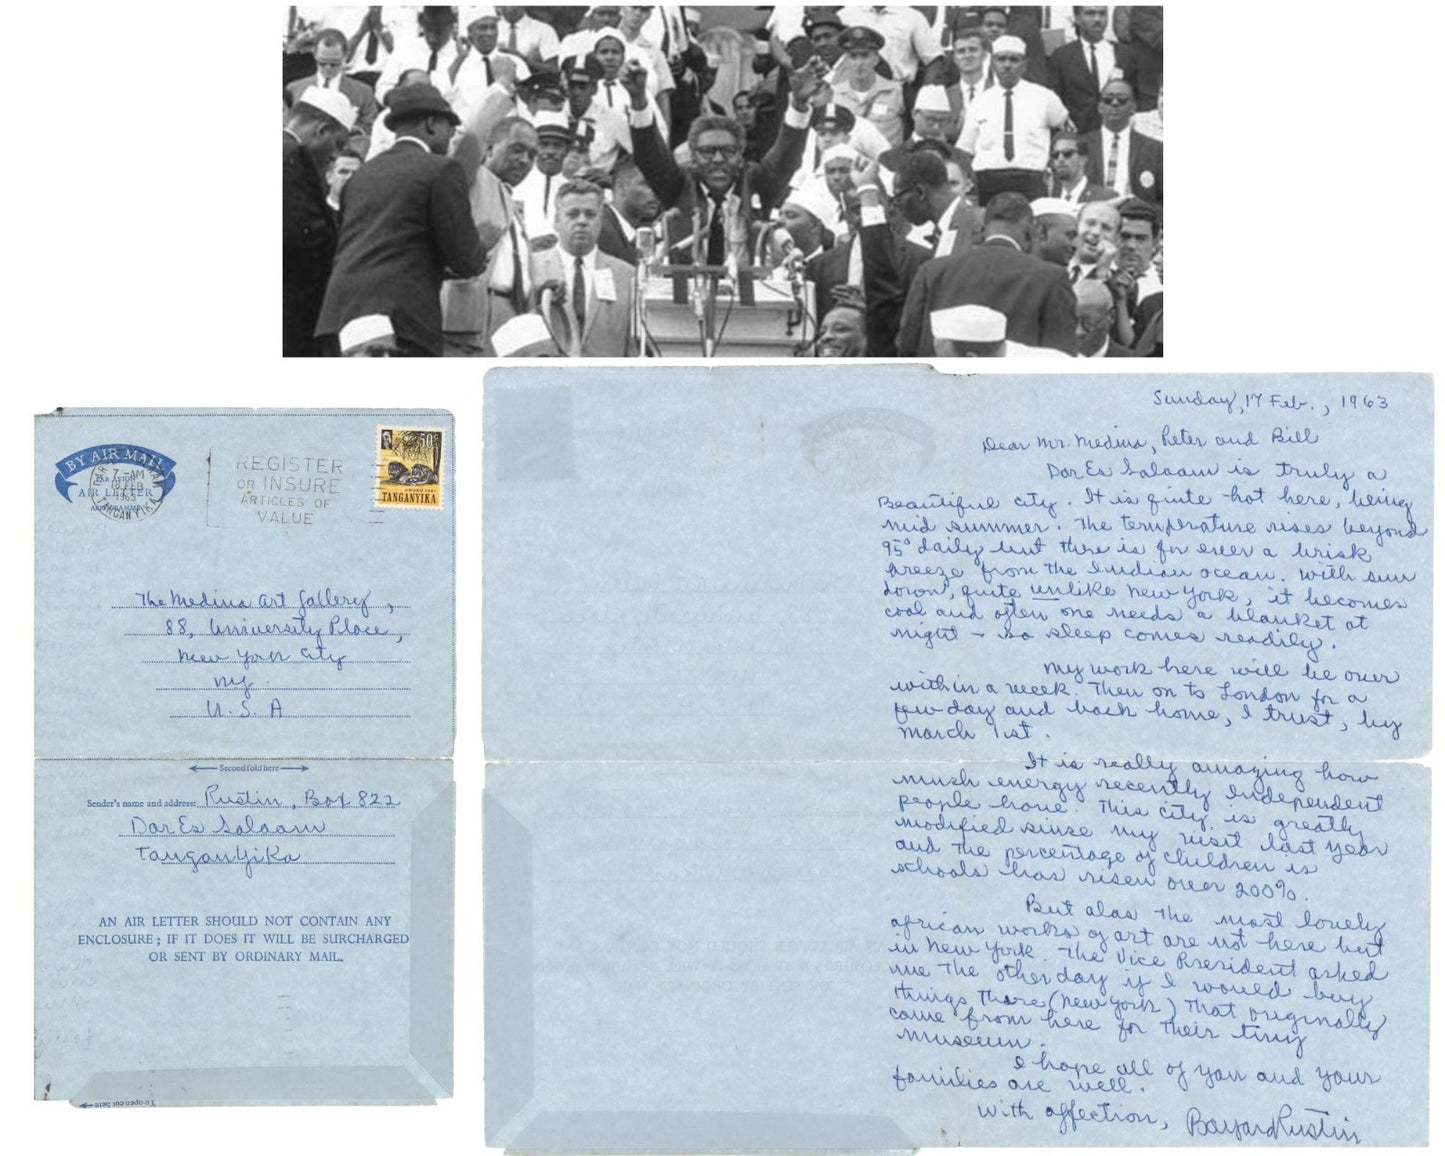 BY AIR MAIL
PAR AVION
AIR LETTER
AEROGRAMME
7 - AM
18 FEB
1963
TANGANYIKA
REGISTER
OR INSURE
ARTICLES OF
VALUE
50c
TANGANYIKA
The Medina Art Gallery,
88, University Place,
New York City
N.Y.
U.S.A
← Second fold here →
Sender's name and address: Rustin, Box 822
Dar Es Salaam
TanganYika
AN AIR LETTER SHOULD NOT CONTAIN ANY
ENCLOSURE; IF IT DOES IT WILL BE SURCHARGED
OR SENT BY ORDINARY MAIL.
To open cut here
Sunday, 17 Feb., 1963
Dear Mr. Medina, Peter and Bill
Dar Es Salaam is truly a
Beautiful city. It is quite hot here, being
mid summer. The temperature rises beyond
95° daily but there is for ever a brisk
breeze from the Indian ocean. With sun
down, quite unlike New York, it becomes
cool and often one needs a blanket at
night – so sleep comes readily.
My work here will be over
within a week. Then on to London for a
few day and back home, I trust, by
March 1st.
It is really amazing how
much energy recently independent
people have. This city is greatly
modified since my visit last year
and the percentage of children is
schools has risen over 200%.
But alas the most lovely
african works of art are not here but
in New York. The Vice President asked
me the other day if I would buy
things there (New York) that originally
came from here for their tiny
museum.
I hope all of you and your
families are well.
With affection, Bayard Rustin